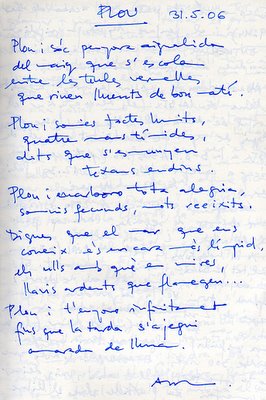 PLOU 31.5.06
Plou i sóc penjora aigualida
del maig que s'escola
entre les teules vermelles
que riuen lluents de bon matí.
Plou i somies tactes humits,
quatre mans tímides,
dits que s'esmunyen
texans endins.
Plou i enarboro tota alegria,
somnis fecunds, mots reeixits.
Digues que el mar que ens
coneix és encara més límpid,
els ulls amb què em mires,
llavis ardents que flamegen...
Plou i t'enyoro infinitament
fins que la tarda s'ajegui
amarada de lluna.